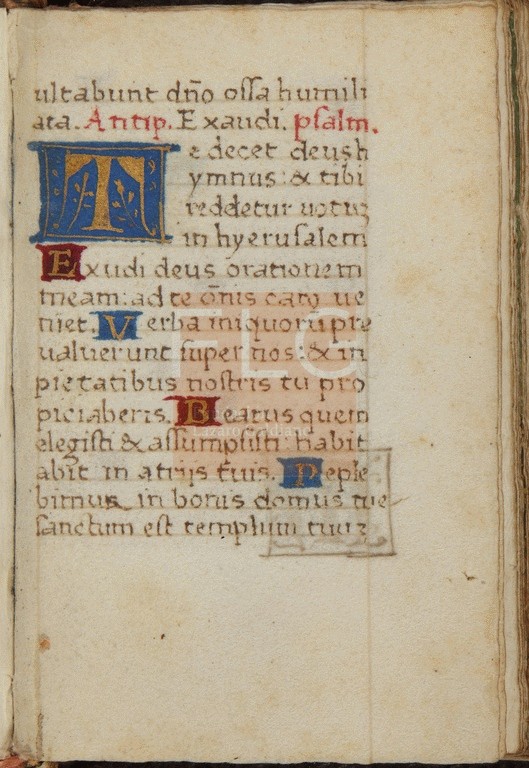 ultabunt dño ossa humili
ata. Antip. Exaudi. psalm.
Te decet deus h
ymnus: & tibi
reddetur uotuʒ
in hyerusalem
Exudi deus orationem
meam: ad te om̄is caro ue
niet. Verba iniquoru pre
ualuerunt super nos: & in
pietatibus nostris tu pro
piciaberis. Beatus quem
elegisti & assumpsisti: habit
abit in atrijs tuis. Reple
bimur in bonis domus tue
sanctum est templum tuuʒ
FLG